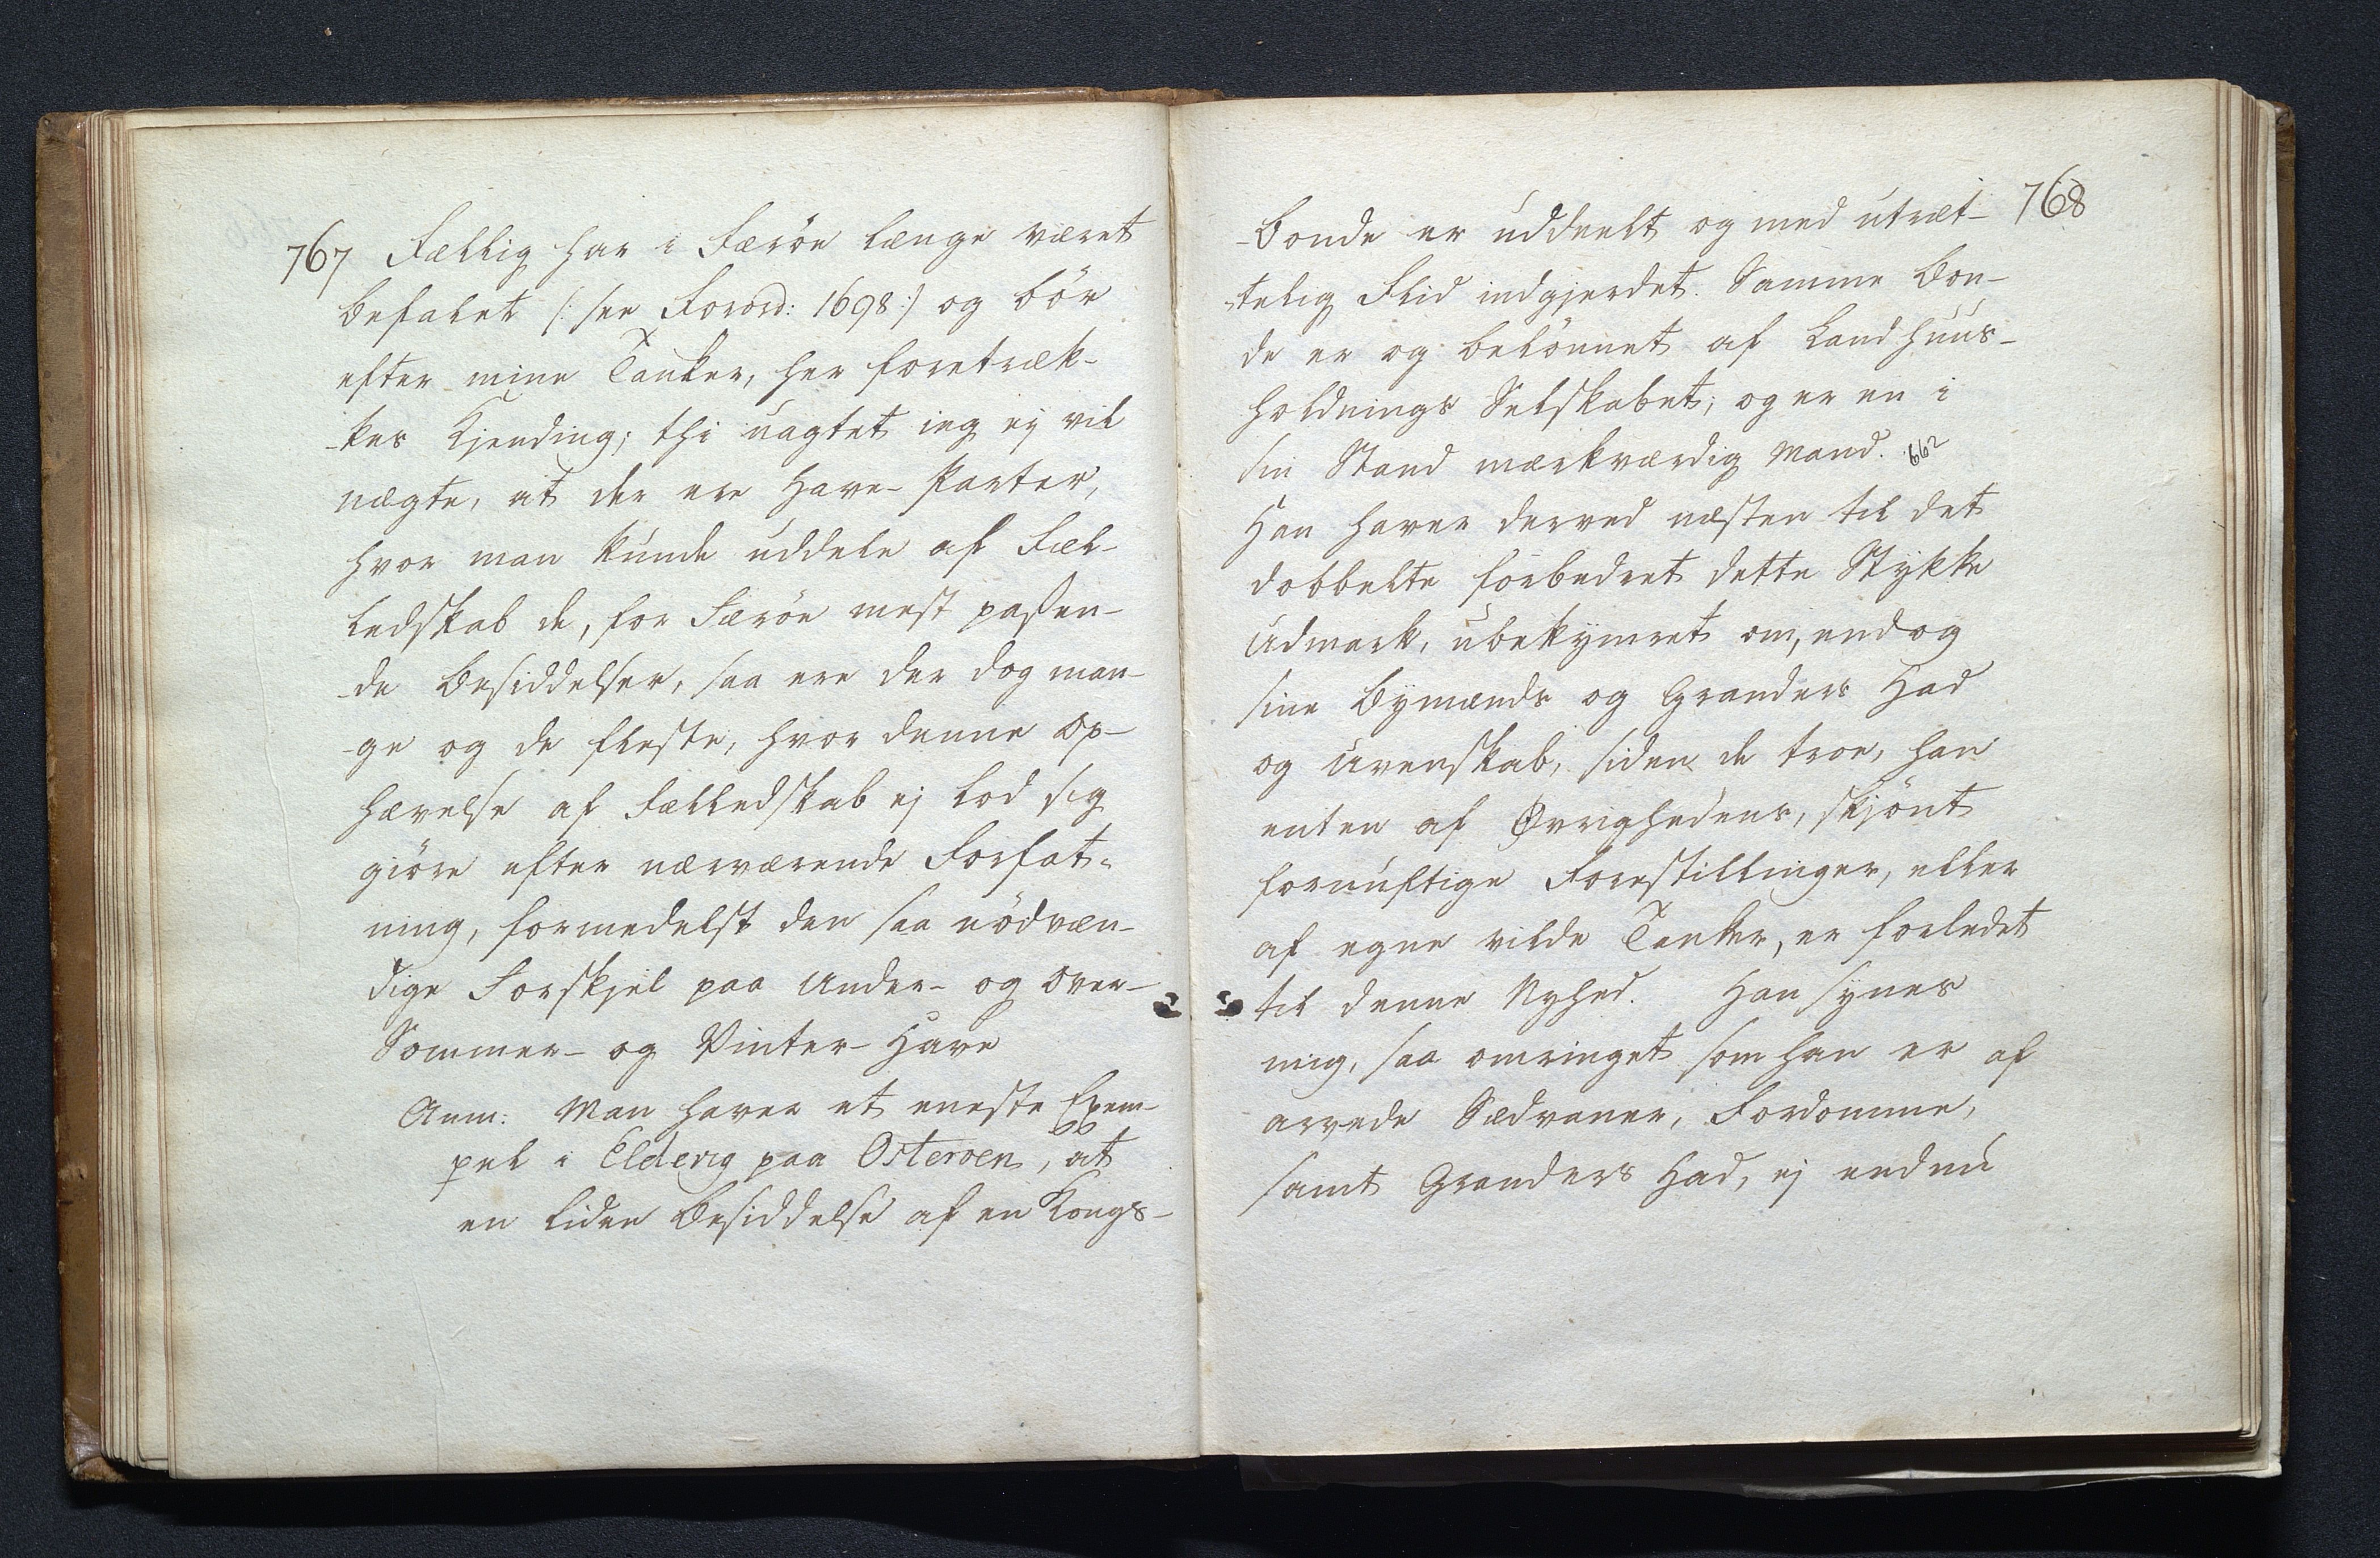 767 Fællig har i Færöe længe været
befalet /: see Forord: 1698:/ og bör
efter mine Tanker, her foretræk-
-kes Kjending; thi uagtet ieg ej vil
nægte, at der ere Have-Parter,
hvor man kunde uddele af Fæl-
ledskab de, for Færöe mest paßen-
-de Besiddelser, saa ere der dog man-
-ge og de fleste, hvor denne Op-
hævelse af Fælledskab ej lod sig
giöre efter nærværende Forfat-
ning, formedelst den saa nödven-
dige Forskjel paa Under- og Over-
Sommer- og Vinter-Have
Anm: Man haver et eneste Exem-
pel i Elderig paa Osteroen, at
en liden Besiddelse af en Kongs-
768
-Bonde er uddeelt og med utræt-
-telig Flid indgjerdet. Samme Bon-
de er og belönnet af Landhuus-
holdnings Selskabet; og er en i
sin Stand mærkværdig Mand. 662
Han haver derved næsten til det
dobbelte forbedret dette Stykke
Udmark, ubekymret om, endog
sine Bymænds og Granders Had
og Uvenskab, siden de troe, han
enten af Øvrighedens, skjönt
fornuftige Forestillinger, eller
af egne vilde Tanker, er forledet
til denne Nyhed. Han synes
mig, saa omringet som han er af
arvede Sædvaner, Fordomme,
samt Granders Had, ej endnu